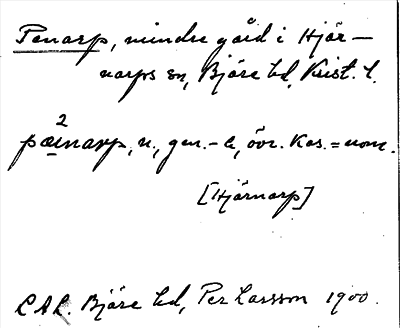 Penarp, mindre gård i Hjär-
narps sn, Bjäre hd, Krist. l.
2
pæ̣inarp, n., gen. - a, övr. kas. = nom.
[Hjärnarp]
LAL. Bjäre hd, Per Larsson 1900.